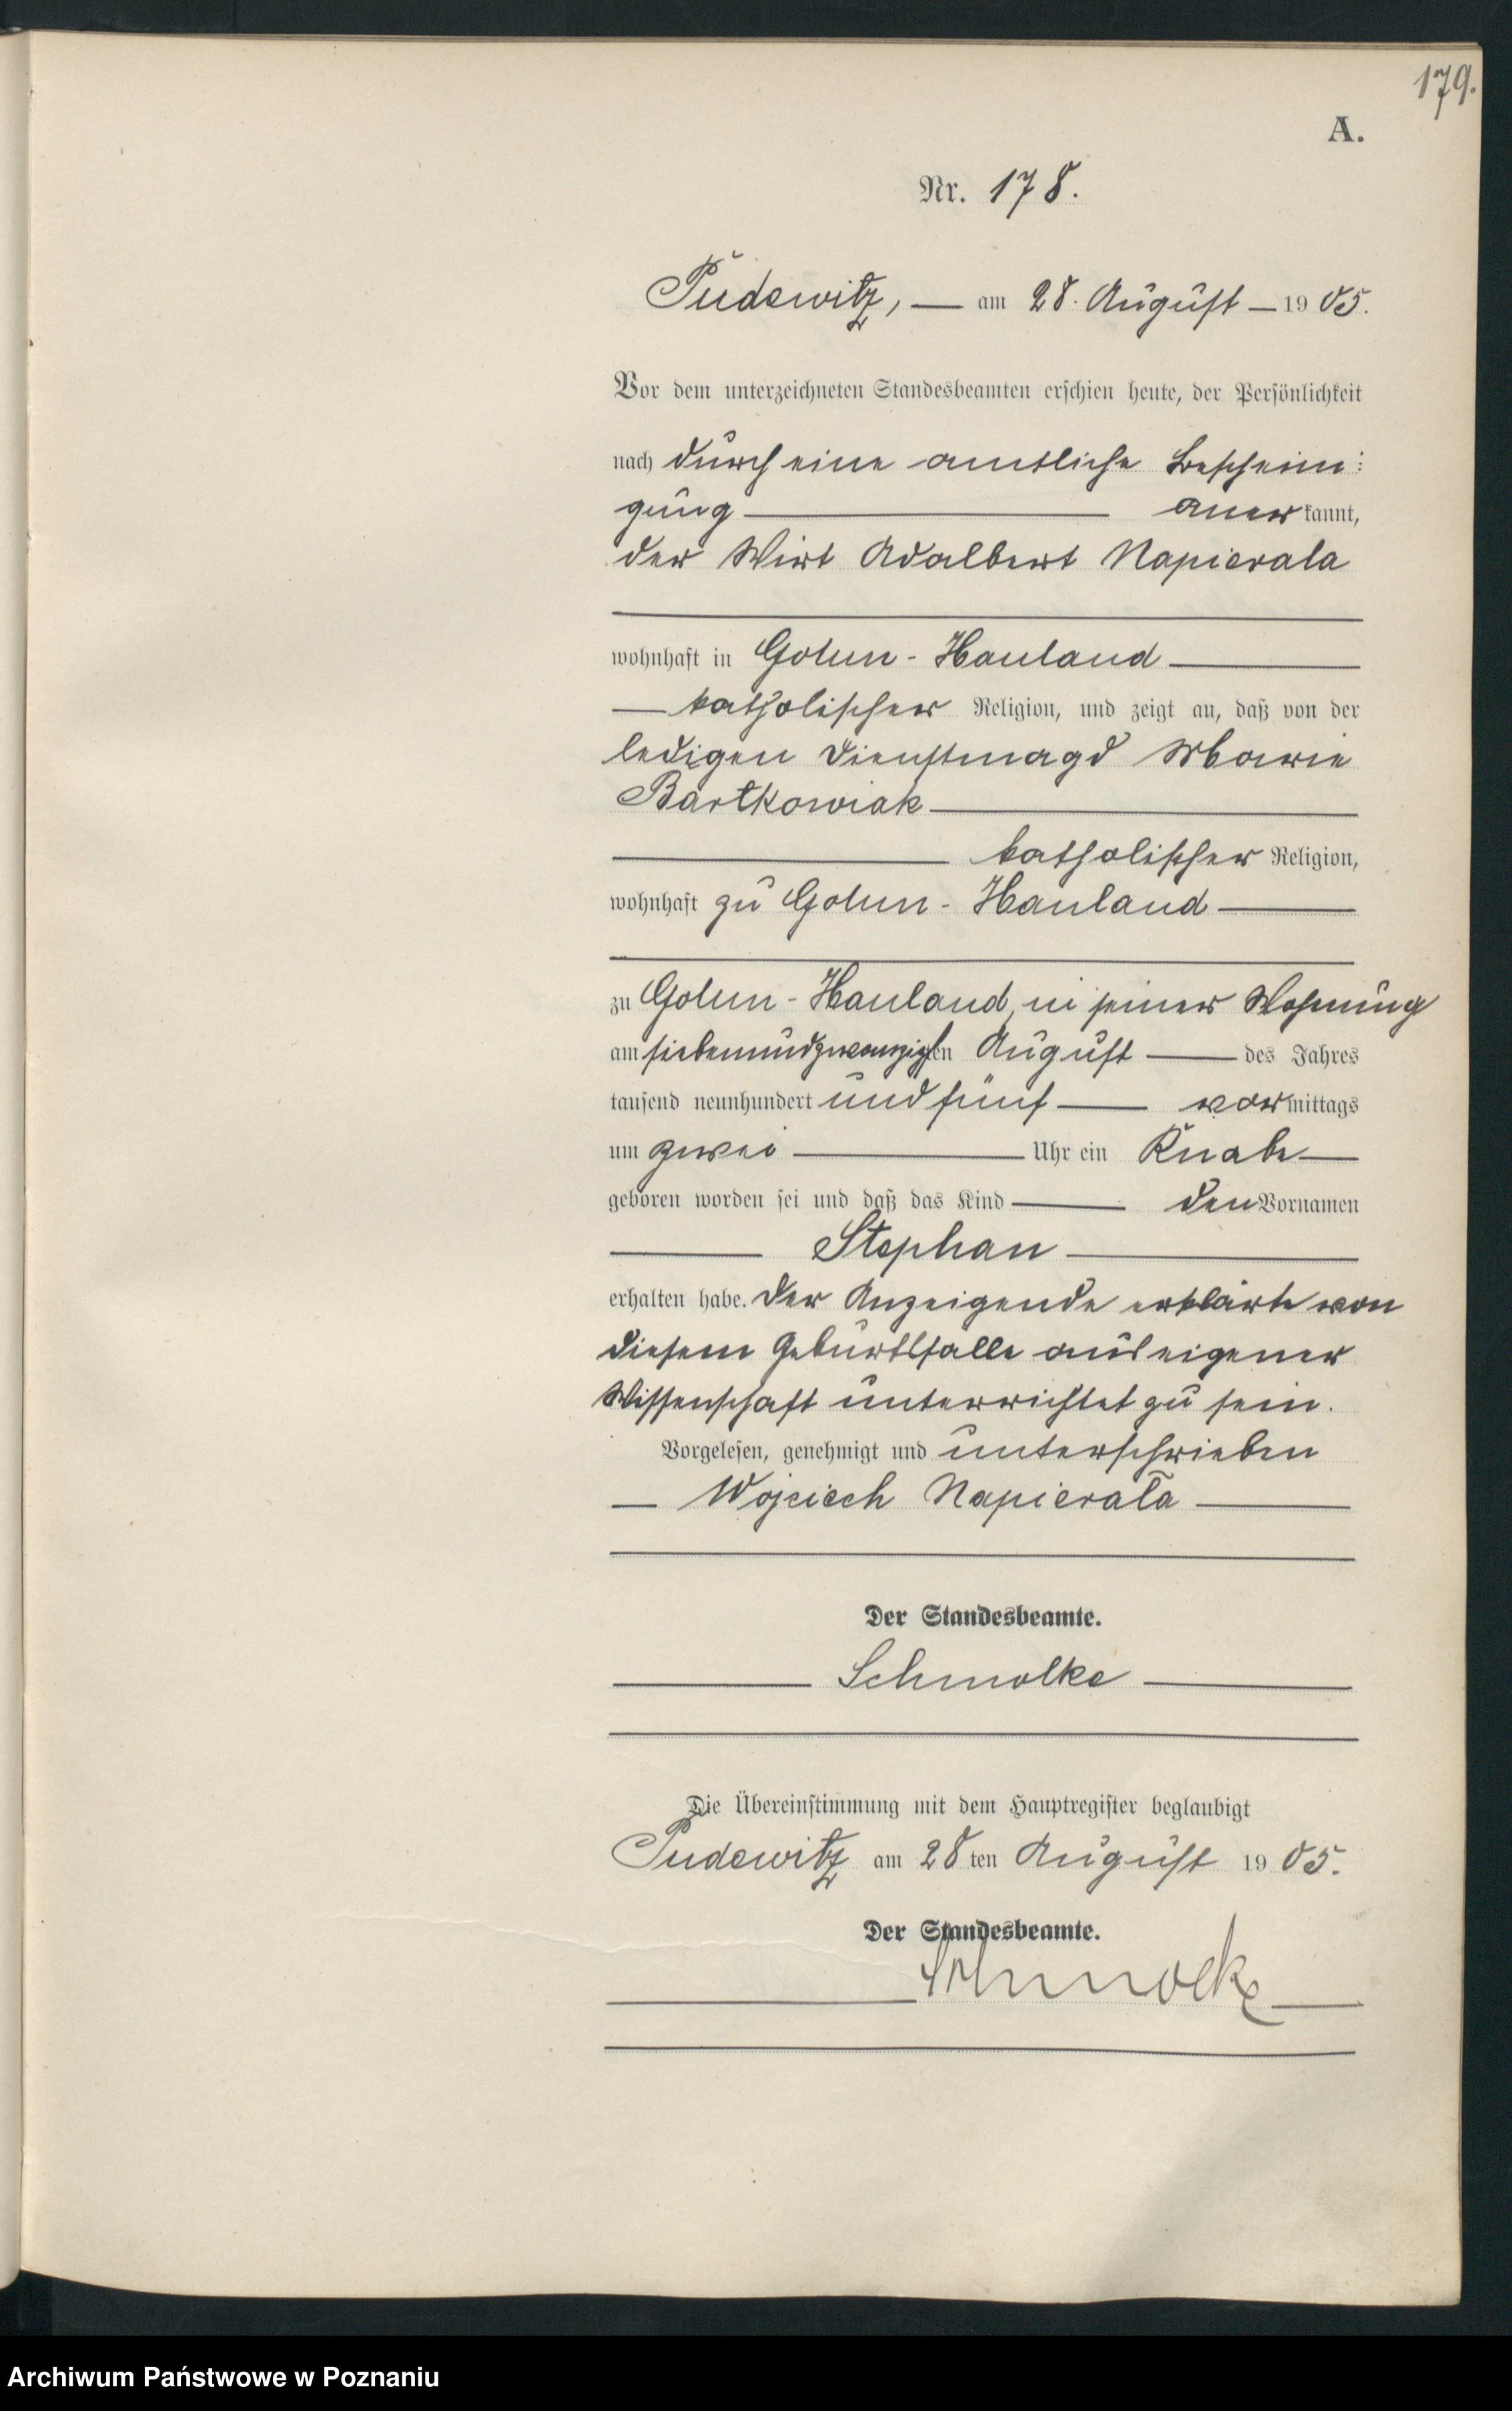 179.
A.
Nr. 178.
Pudewitz, — am 28. August — 19 05.
Vor dem unterzeichneten Standesbeamten erschien heute, der Persönlichkeit
nach durch eine amtliche Bescheini:
gung — anerkannt,
der Wirt Adalbert Napierala
wohnhaft in Golun - Hauland —
— katholischer Religion, und zeigt an, daß von der
ledigen Dienstmagd Marie
Bartkowiak —
— katholischer Religion,
wohnhaft zu Golun - Hauland —
zu Golun - Hauland, in seiner Wohnung
am siebenundzwanzigsten August — des Jahres
tausend neunhundert und fünf — vormittags
um zwei — Uhr ein Knabe —
geboren worden sei und daß das Kind — den Vornamen
— Stephan —
erhalten habe. Der Anzeigende erklärte von
diesem Geburtsfalle aus eigener
Wissenschaft unterrichtet zu sein.
Vorgelesen, genehmigt und unterschrieben
— Wojciech Napierała —
Der Standesbeamte.
— Schmolke —
Die Übereinstimmung mit dem Hauptregister beglaubigt
Pudewitz am 28 ten August 19 05.
Der Standesbeamte.
— Schmolke —
Archiwum Państwowe w Poznaniu